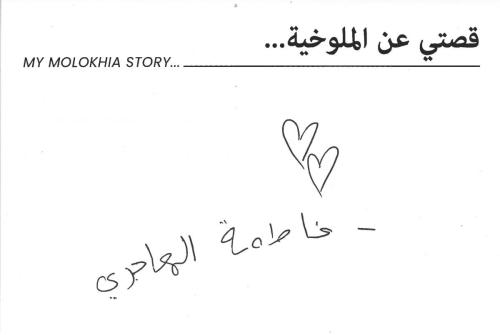 قصتي عن الملوخية...
MY MOLOKHIA STORY...
- فاطمة الهاجري